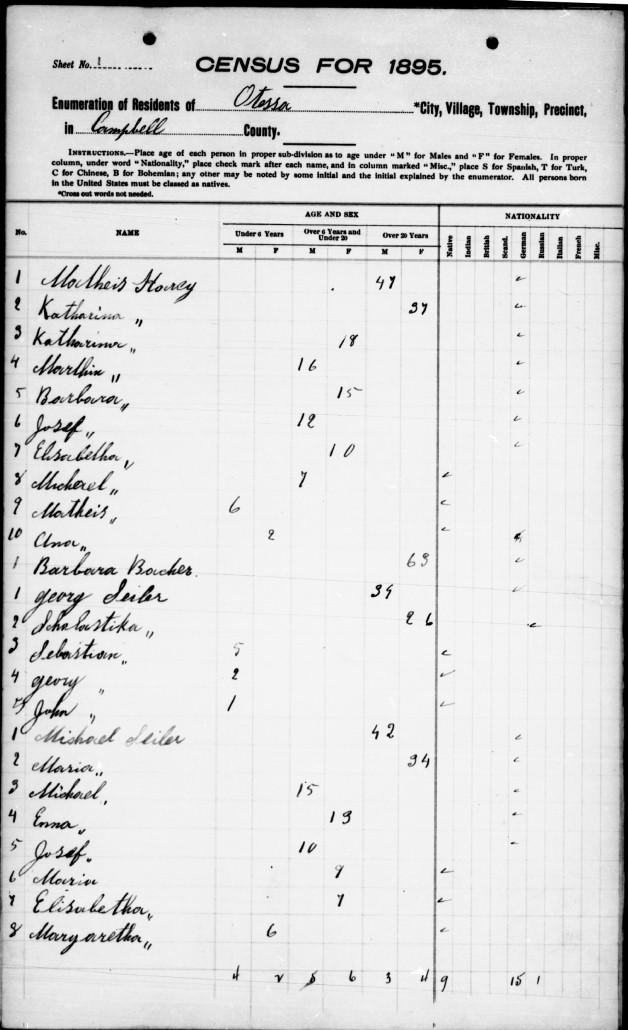 Sheet No. 1
CENSUS FOR 1895.
Enumeration of Residents of Otessa *City, Village, Township, Precinct,
in Campbell County.
INSTRUCTIONS.—Place age of each person in proper sub-division as to age under "M" for Males and "F" for Females. In proper
column, under word "Nationality," place check mark after each name, and in column marked "Misc.," place S for Spanish, T for Turk,
C for Chinese, B for Bohemian; any other may be noted by some initial and the initial explained by the enumerator. All persons born
in the United States must be classed as natives.
*Cross out words not needed.
AGE AND SEX NATIONALITY
No. NAME Under 6 Years Over 6 Years and Under 20 Over 20 Years Native Indian British Scand. German Russian Italian French Misc.
M F M F M F
1 Matheis 47 ✓
2 Katharina " 37 ✓
3 Katharina " 18 ✓
4 Marthin " 16 ✓
5 Barbara " 15 ✓
6 Josef " 12 ✓
7 Elisabetha " 10 ✓
8 Michael " 7 ✓
9 Matheis " 6 ✓
10 Ana " 2 ✓
1 Barbara Bacher 63 ✓
1 georg Seiler 34 ✓
2 Scholastika " 26 ✓
3 Sebastian " 5 ✓
4 georg " 2 ✓
5 John " 1 ✓
1 Michael Seiler 42 ✓
2 Maria " 34 ✓
3 Michael " 15 ✓
4 Enna " 13 ✓
5 Josef " 10 ✓
6 Maria 9 ✓
7 Elisabetha " 7 ✓
8 Margaretha " 6 ✓
4 2 5 6 3 4 9 15 1